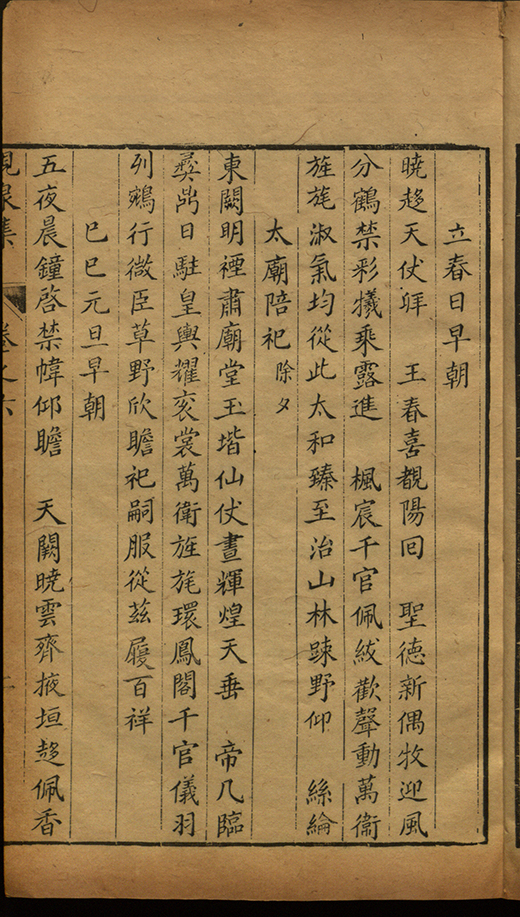 立春日早朝
曉趍天仗拜 王春喜覩陽囘 聖德新偶牧迎風
分鶴禁彩犧乘露進 楓宸千官佩紱歡聲動萬衞
旌旄淑氣均從此太和臻至治山林踈野仰 絲綸
太廟陪祀除夕
東闕明禋肅廟堂玉堦仙仗晝輝煌天垂 帝几臨
彜鼎日駐皇輿耀衮裳萬衛旌旄環鳳閣千官儀羽
列鵷行微臣草野欣瞻祀嗣服從茲履百祥
巳巳元旦早朝
五夜晨鐘啓禁幃仰瞻 天闕曉雲齊掖垣趍佩香
集 卷之六